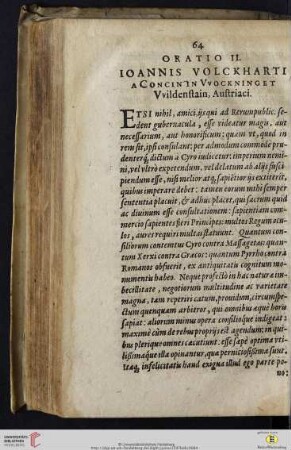 64
ORATIO II.
IOANNIS VOLCKHARTI
A CONCIN IN VVOCKNING ET
VVildenstain, Austriaci.
ETSI nihil, amici, ijsqui ad Rerumpublic. se-
dent gubernacula, esse videatur magis, aut
necessarium, aut honorificum; quam vt, quod in
rem sit, ipsi consulant: per admodum commode pru-
denterq́; dictum a Cyro iudicetur: imperium nemi-
ni, vel vltrò expetendum, vel delatum ab alijs susci-
piendum esse, nisi melior atq; sapientior ijs extiterit,
quibus imperare debet: tamen eorum mihi semper
sententia placuit, & adhuc placet, qui sacram quid
ac diuinum esse consultationem: sapientium com-
mercio sapientes fieri Principes: multos Regum ocu-
los, aures requiri multas statuunt. Quantum con-
siliorum contentus Cyro contra Massagetas: quan-
tum Xerxi contra Græcos: quantum Pyrrho contra
Romanos obfuerit, ex antiquitatis cognitum mo-
numentis habeo. Neque profectò in hac naturæ im-
becillitate, negotiorum multitudine ac varietate
magna, tam reperiri catum, prouidum, circumspe-
ctum quenquam arbitror, qui omnibus æquè horis
sapiat: aliorum minus opera consilioque indigeat:
maximè cùm de rebus proprijs est agendum: in qui-
bus plerique omnes cæcutiunt. esse sæpè optima vti-
lissimaque illa opinantur, quæ perniciosissima sunt.
Itaq; infelicitatis haud exigua illud ego parte po-
no: